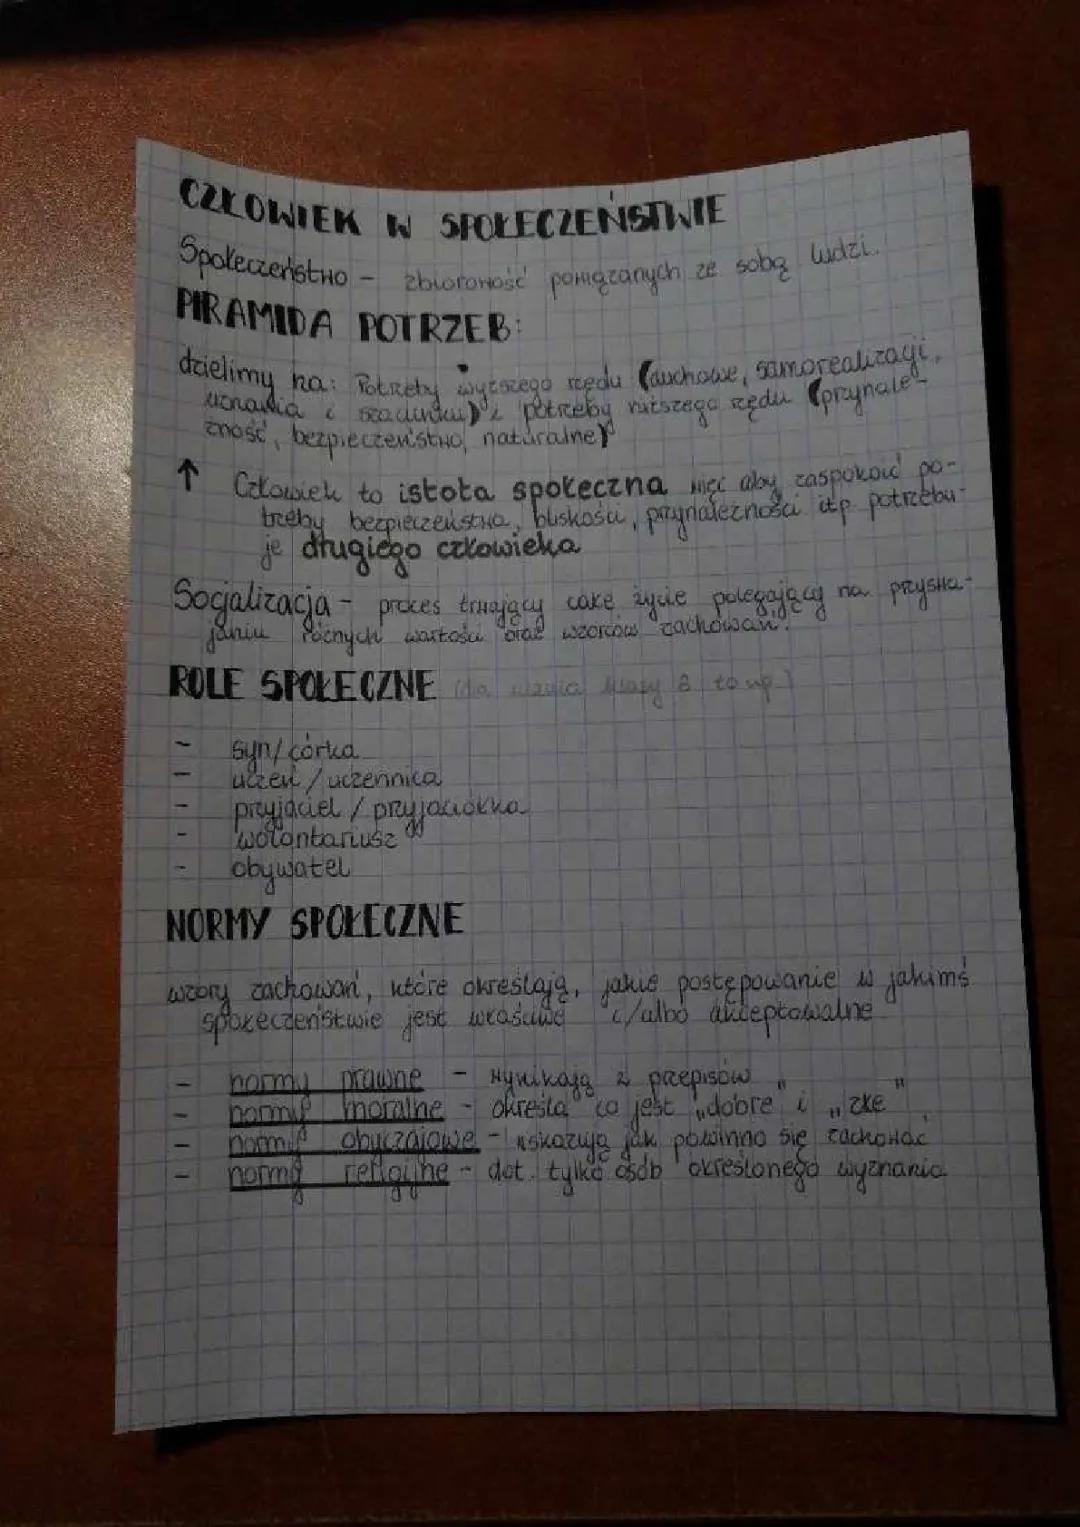 CZŁOWIEK W SPOŁECZEŃSTWIE
Społeczeństwo - zbiorowość powiązanych ze sobą ludzi.
PIRAMIDA POTRZEB:
dzielimy na: Potrzeby wyższego rzędu (duchowe, samorealizacji,
uznania i szacunku) i potrzeby niższego rzędu (przynale-
żność, bezpieczeństwo, naturalne)
↑ Człowiek to istota społeczna więc aby zaspokoić po-
trzeby bezpieczeństwa, bliskości, przynależności itp. potrzebu-
je drugiego człowieka
Socjalizacja - proces trwający całe życie polegający na przyswa-
janiu różnych wartości oraz wzorców zachowań.
ROLE SPOŁECZNE (dla ucznia klasy 8 to np.)
- syn/córka
- uczeń/uczennica
- przyjaciel / przyjaciółka
- wolontariusz
- obywatel
NORMY SPOŁECZNE
wzory zachowań, które określają, jakie postępowanie w jakimś
społeczeństwie jest właściwe i/albo akceptowalne
- normy prawne - wynikają z przepisów
- normy moralne - określa co jest „dobre" i „złe"
- normy obyczajowe - wskazują jak powinno się zachować
- normy religijne - dot. tylko osób określonego wyznania